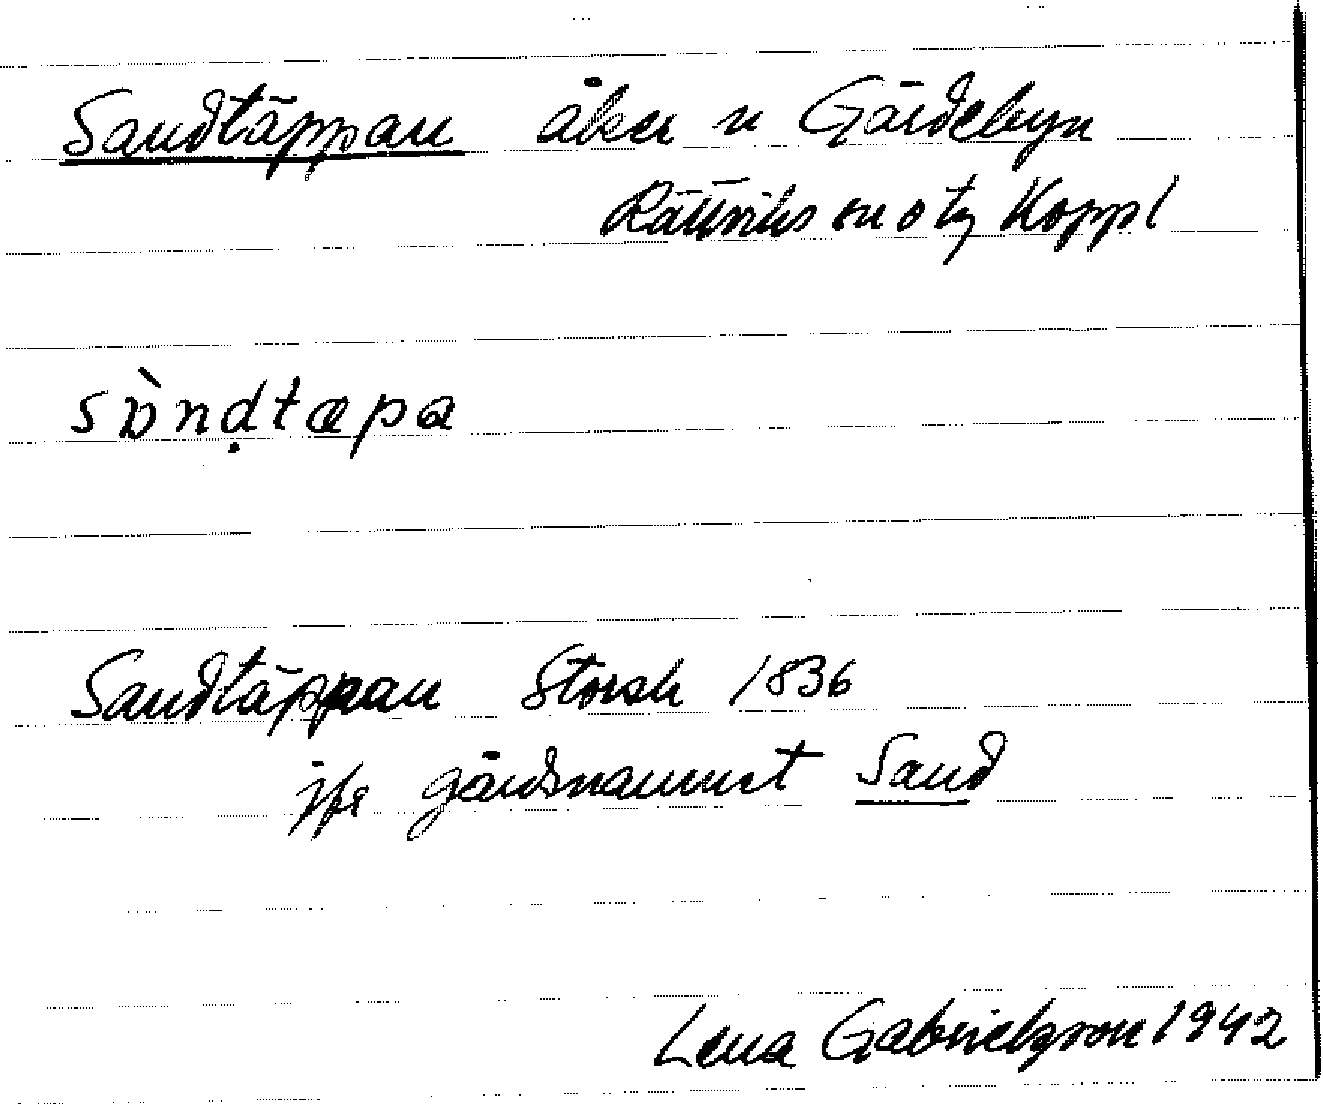 Sandtäppan åker n Gärdebyn
Rättviks sn o tg Koppl
sɒ̀nḍtæpa
Sandtäppan Storsk 1836
jfr gårdsnamnet Sand
Lena Gabrielsson 1942